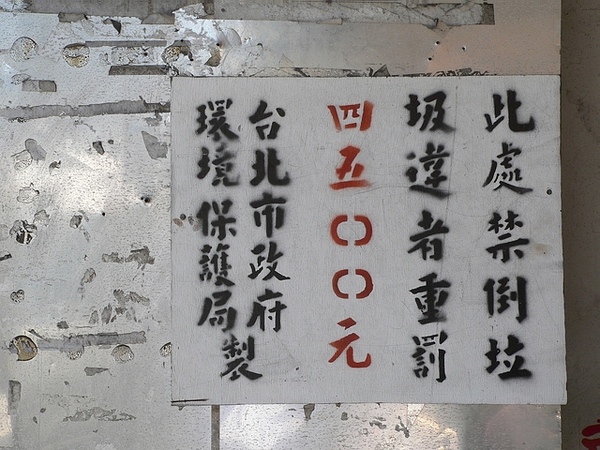 此處禁倒垃
圾違者重罰
四五〇〇元
台北市政府
環境保護局製